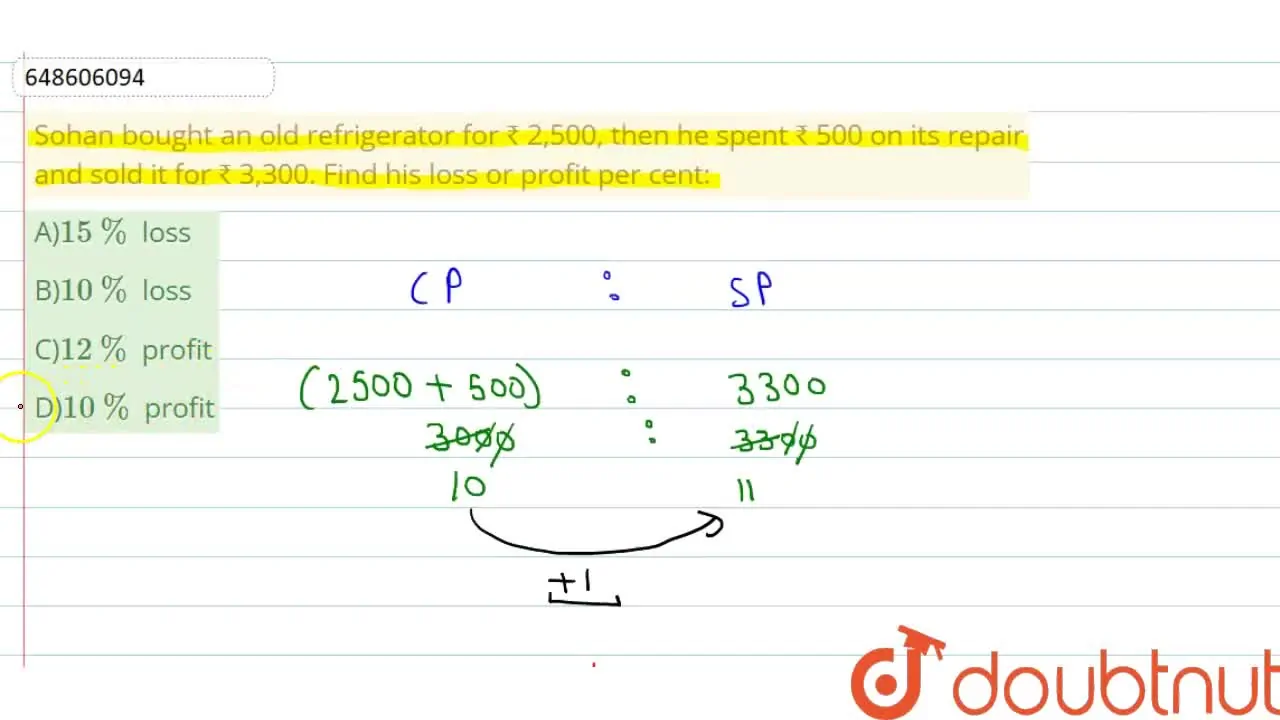 648606094
Sohan bought an old refrigerator for ₹ 2,500, then he spent ₹ 500 on its repair
and sold it for ₹ 3,300. Find his loss or profit per cent:
A)15 % loss
B)10 % loss
C)12 % profit
D)10 % profit
CP : SP
(2500 + 500) : 3300
3000 : 3300
10 11
+1
doubtnut